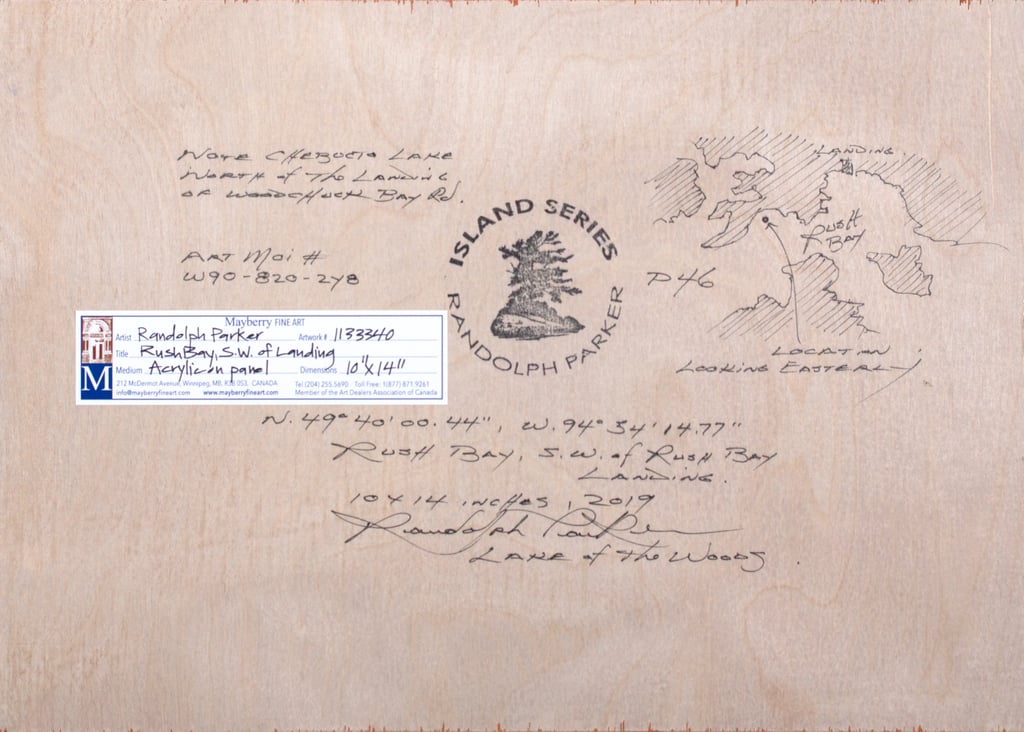 NORTH of The LANDING
OF WOODCHUCK BAY Rd.
ART Moi #
W90-820-2Y8
ISLAND SERIES
RANDOLPH PARKER
LANDING
RUSH
BAY
P46
LOCATION
LOOKING EASTERLY
Mayberry FINE ART
Artist Randolph Parker Artwork # 1133340
Title Rush Bay, S.W. of Landing
Medium Acrylic on panel Dimensions 10"x14"
212 McDermot Avenue, Winnipeg, MB, R3B 0S3, CANADA Tel (204) 255.5690 Toll Free: 1(877) 871.9261
info@mayberryfineart.com www.mayberryfineart.com Member of the Art Dealers Association of Canada
M
N. 49° 40' 00.44", W. 94° 54' 14.77"
RUSH BAY, S.W. of RUSH BAY
LANDING.
10 x 14 inches, 2019
Randolph Parker
LAKE of The WOODS